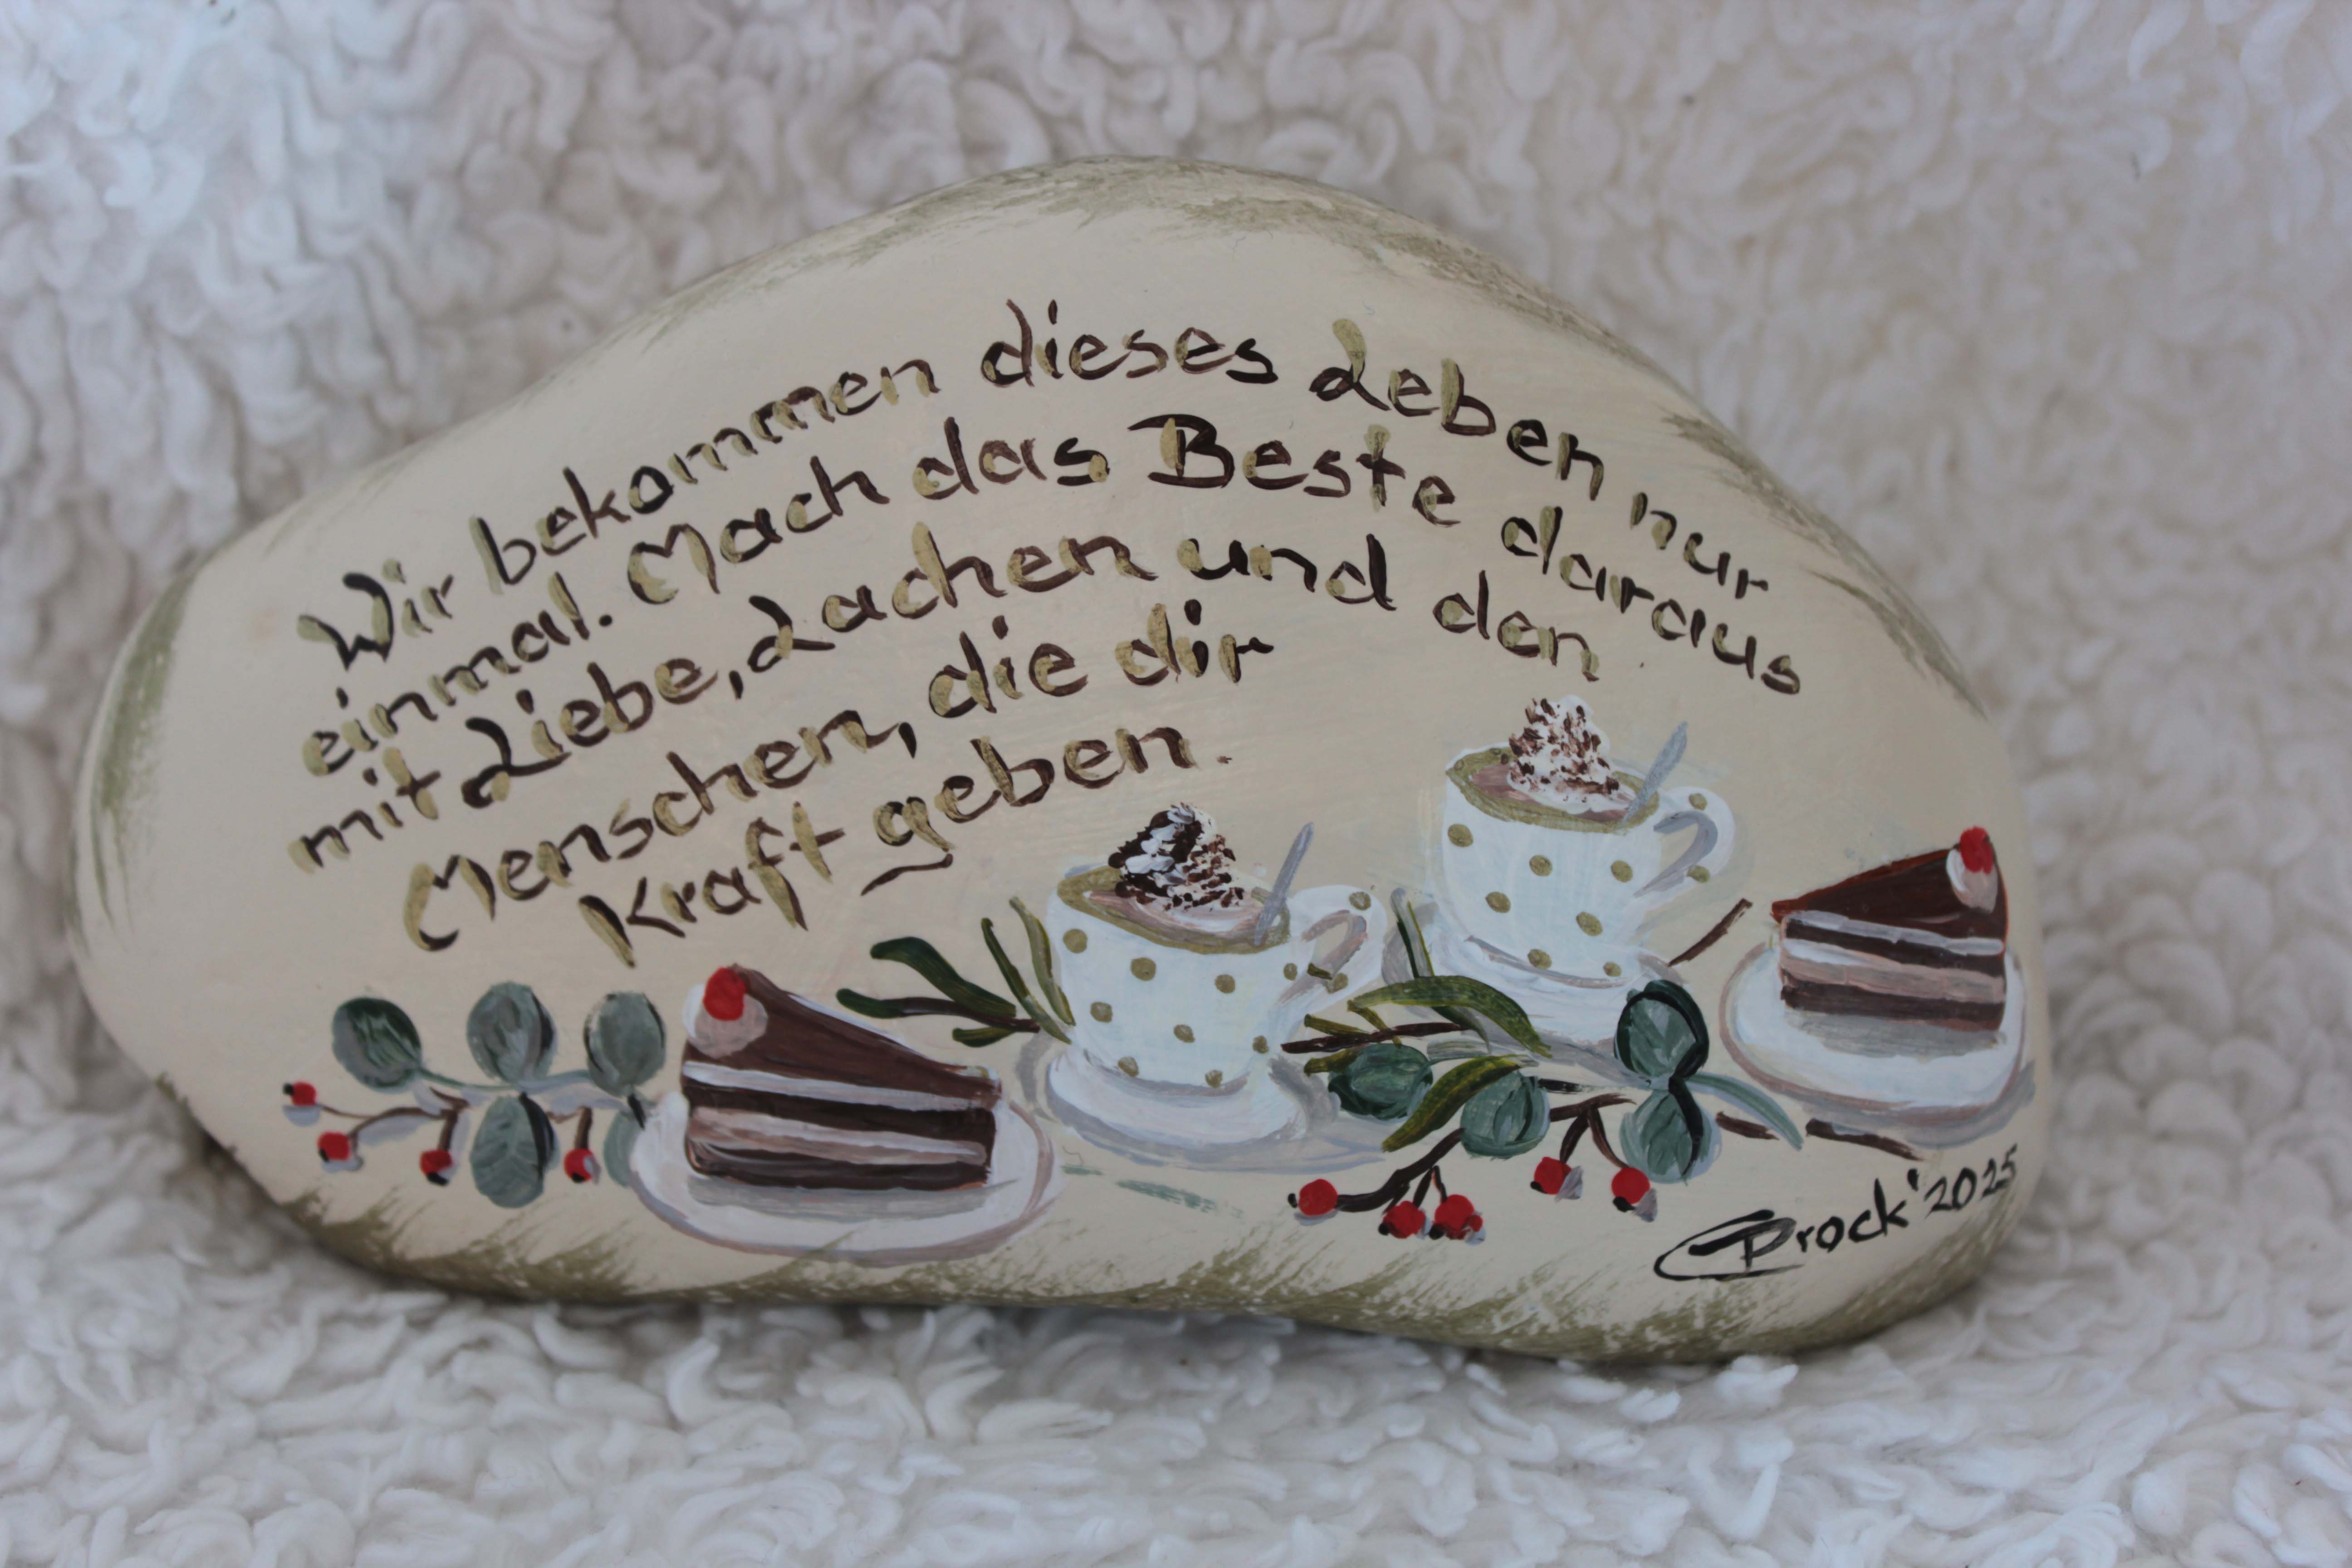 Wir bekommen dieses Leben nur
einmal. Mach das Beste daraus
mit Liebe, Lachen und den
Menschen, die dir
Kraft geben.
CProck '2025